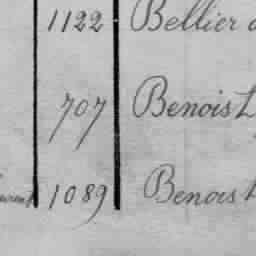 1122 Bellier
707 Benois
1089 Benois